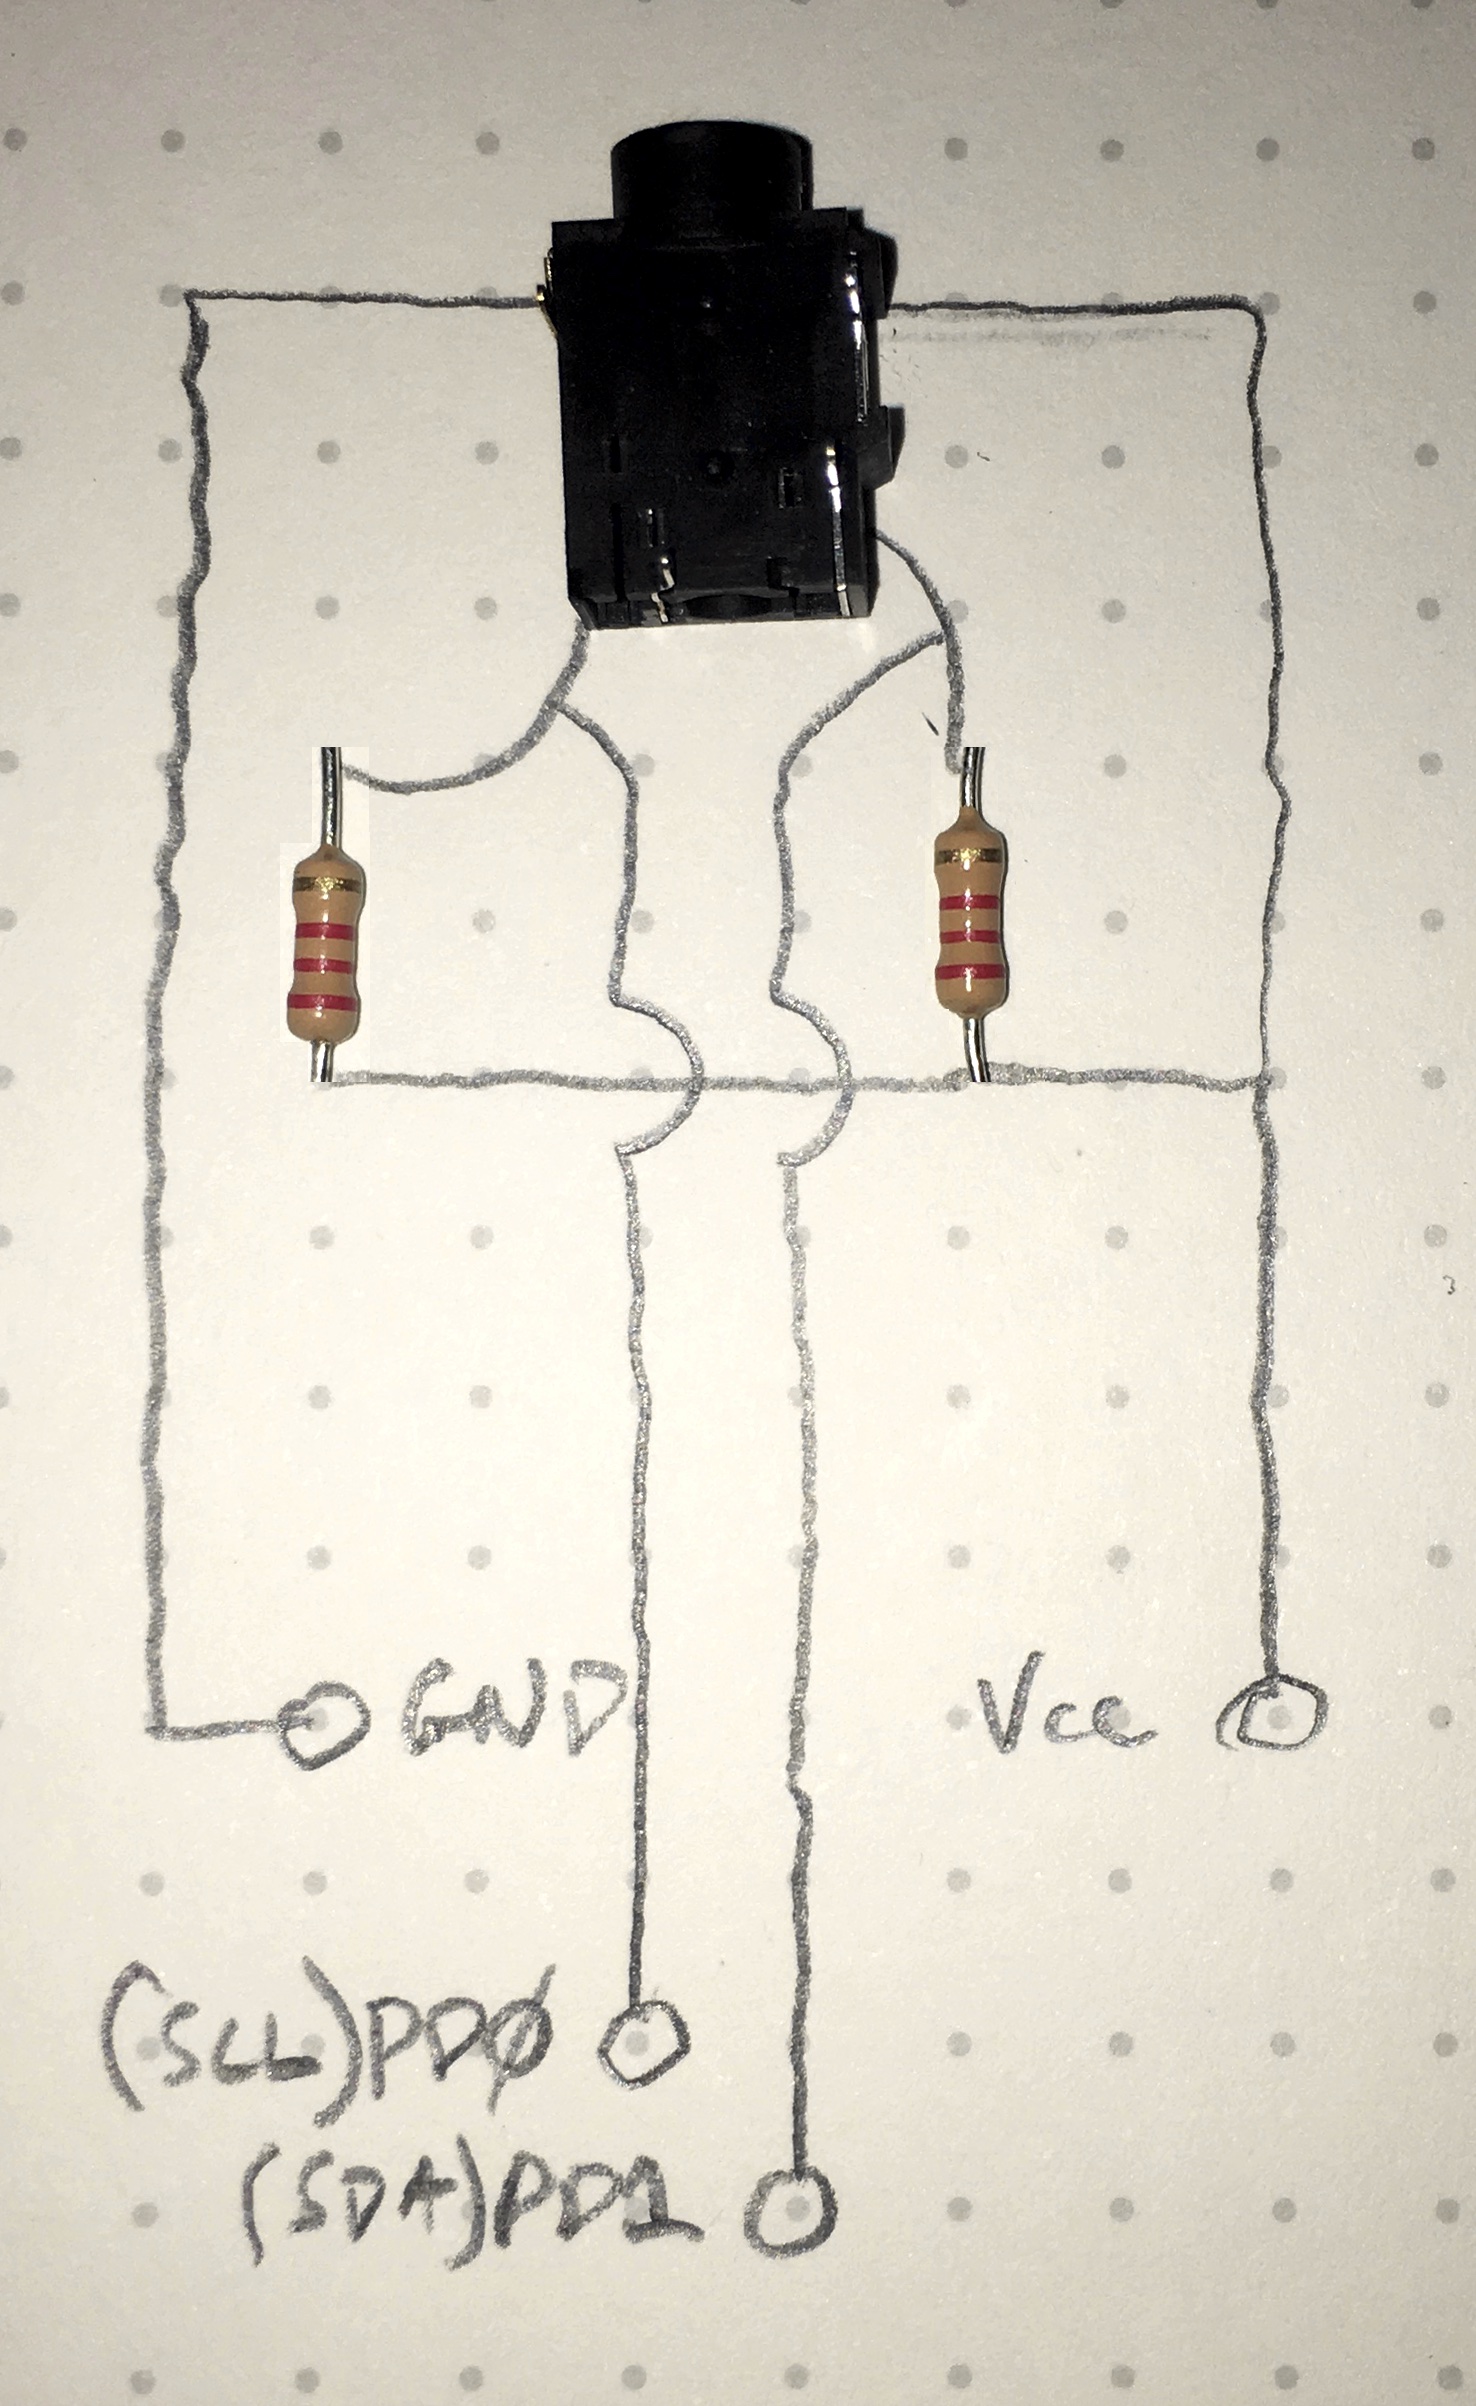 GND
Vcc
(SCL)PD0
(SDA)PD1